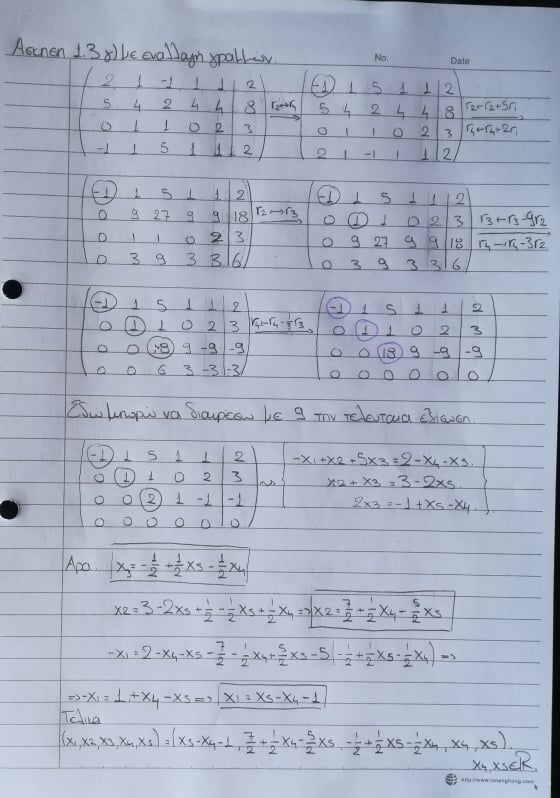 Άσκηση 1.3 γ) Με εναλλαγή γραμμών. No. Date
2 1 -1 1 1 | 2
5 4 2 4 4 | 8
0 1 1 0 2 | 3
-1 1 5 1 1 | 2
r2↔r1
-1 1 5 1 1 | 2
5 4 2 4 4 | 8
0 1 1 0 2 | 3
2 1 -1 1 1 | 2
r2←r2+5r1
r4←r4+2r1
-1 1 5 1 1 | 2
0 9 27 9 9 | 18
0 1 1 0 2 | 3
0 3 9 3 3 | 6
r2↔r3
-1 1 5 1 1 | 2
0 1 1 0 2 | 3
0 9 27 9 9 | 18
0 3 9 3 3 | 6
r3←r3-9r2
r4→r4-3r2
-1 1 5 1 1 | 2
0 1 1 0 2 | 3
0 0 18 9 -9 | -9
0 0 6 3 -3 | -3
r4←r4-1/3r3
-1 1 5 1 1 | 2
0 1 1 0 2 | 3
0 0 18 9 -9 | -9
0 0 0 0 0 | 0
Εδώ μπορώ να διαιρέσω με 9 την τελευταία εξίσωση.
-1 1 5 1 1 | 2
0 1 1 0 2 | 3
0 0 2 1 -1 | -1
0 0 0 0 0 | 0
~
-x1+x2+5x3=2-x4-x5.
x2+x3=3-2x5.
2x3=-1+x5-x4.
Άρα x3=-1/2+1/2x5-1/2x4
x2=3-2x5+1/2-1/2x5+1/2x4 => x2=7/2+1/2x4-5/2x5
-x1=2-x4-x5-7/2-1/2x4+5/2x5-5(-1/2+1/2x5-1/2x4) =>
=> -x1=1+x4-x5 => x1=x5-x4-1
Τελικά
(x1,x2,x3,x4,x5)=(x5-x4-1, 7/2+1/2x4-5/2x5, -1/2+1/2x5-1/2x4, x4, x5).
x4,x5∈ℝ.